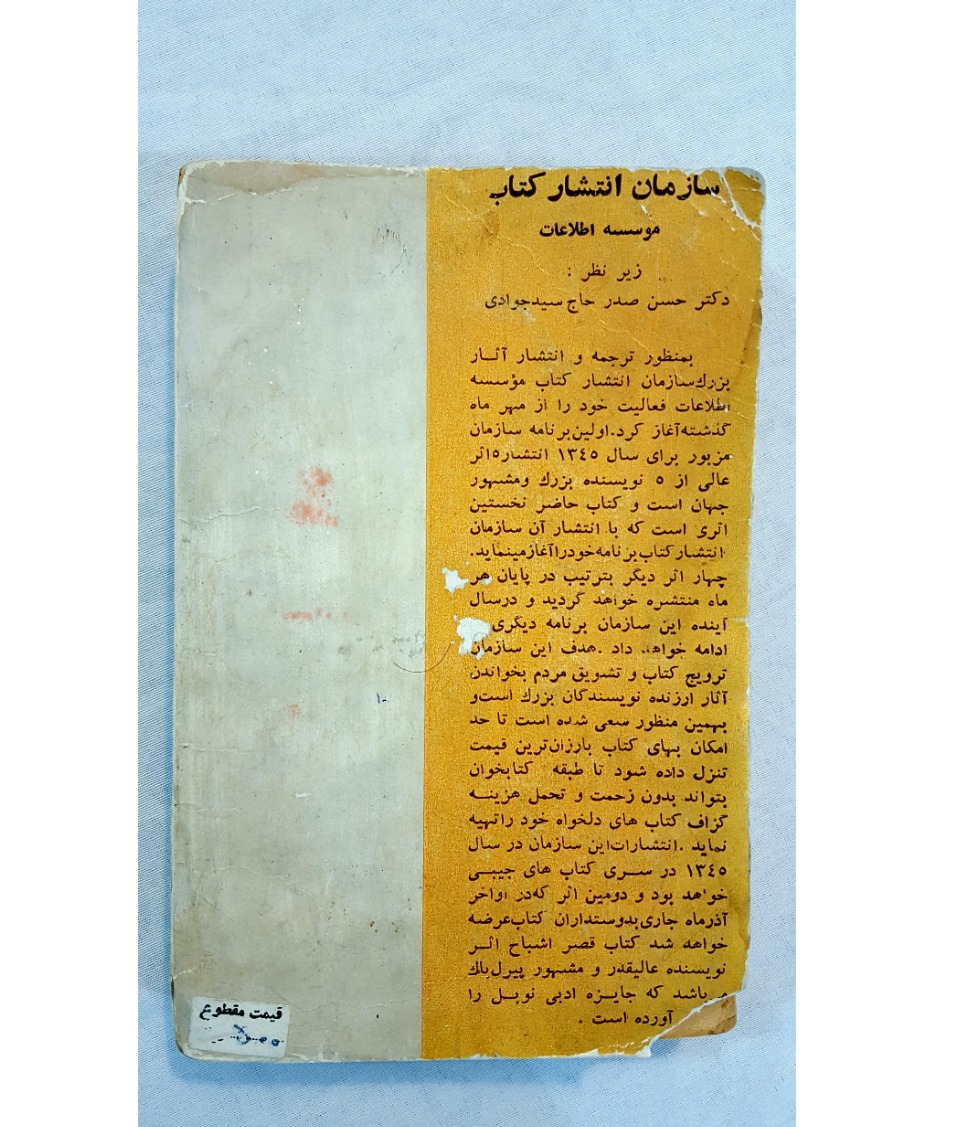 سازمان انتشار کتاب
موسسه اطلاعات
زیر نظر :
دکتر حسن صدر حاج سیدجوادی
بمنظور ترجمه و انتشار آثار
بزرك سازمان انتشار کتاب مؤسسه
اطلاعات فعالیت خود را از مهر ماه
گذشته آغاز کرد. اولین برنامه سازمان
مزبور برای سال ۱۳٤٥ انتشار ٥ اثر
عالی از ٥ نویسنده بزرك ومشهور
جهان است و کتاب حاضر نخستین
اثری است که با انتشار آن سازمان
انتشار کتاب برنامه خود را آغاز مینماید.
چهار اثر دیگر بترتیب در پایان هر
ماه منتشره خواهد گردید و درسال
آینده این سازمان برنامه دیگری
ادامه خواهد داد . هدف این سازمان
ترویج کتاب و تشویق مردم بخواندن
آثار ارزنده نویسندگان بزرك است و
بهمین منظور سعی شده است تا حد
امکان بهای کتاب بارزان‌ترین قیمت
تنزل داده شود تا طبقه کتابخوان
بتواند بدون زحمت و تحمل هزینه
گزاف کتاب های دلخواه خود را تهیه
نماید . انتشارات این سازمان در سال
۱۳٤٥ در سری کتاب های جیبی
خواهد بود و دومین اثر که در اواخر
آذرماه جاری بدوستداران کتاب عرضه
خواهد شد کتاب قصر اشباح اثر
نویسنده عالیقدر و مشهور پیرل باك
میباشد که جایزه ادبی نوبل را
آورده است .
قیمت مقطوع